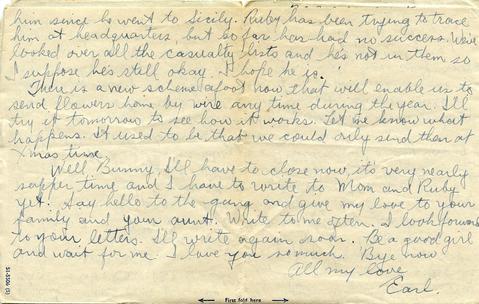 him since he went to Sicily. Ruby has been trying to trace
him at headquarters but so far has had no success. We've
looked over all the casualty lists and he's not in them so
I suppose he's still okay. I hope he is.
There is a new scheme afoot now that will enable us to
send flowers home by wire any time during the year. I'll
try it tomorrow to see how it works. Let me know what
happens. It used to be that we could only send them at
Xmas time.
Well Bunny, I'll have to close now, it's very nearly
supper time and I have to write to Mom and Ruby
yet. Say hello to the gang and give my love to your
family and your aunt. Write to me often. I look forward
to your letters. I'll write again soon. Be a good girl
and wait for me. I love you so much. Bye now
All my love
Earl.
First fold here